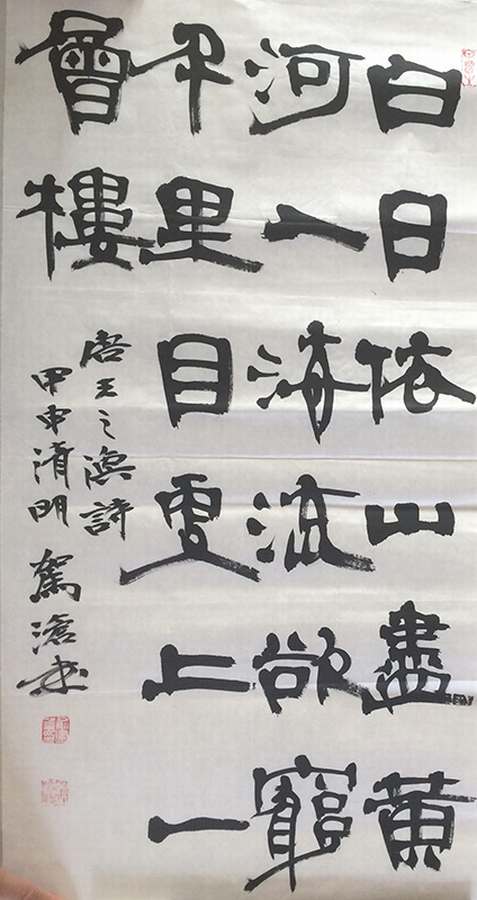 白日依山盡黃
河一海流欲窮
千里目更上一
曾樓
唐王之渙詩
甲申清明 駕滄书